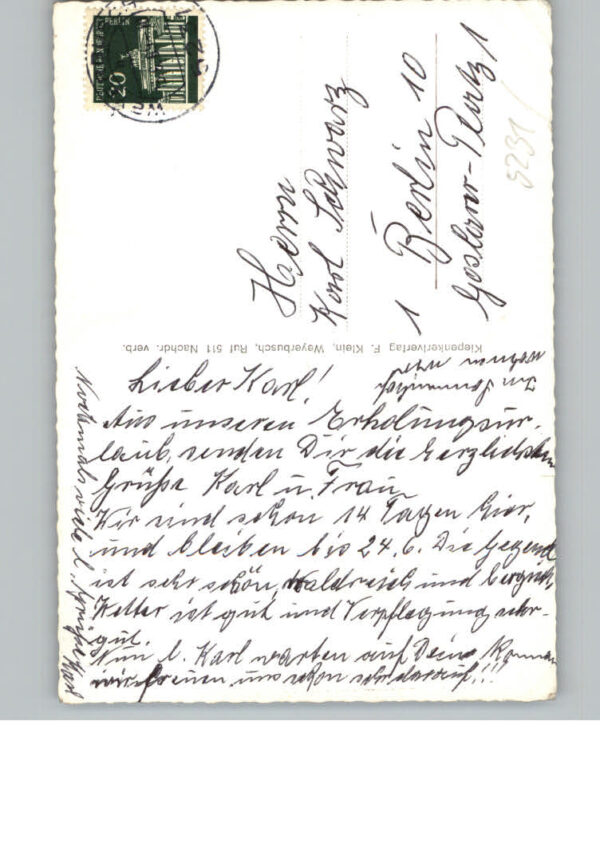 20
BERLIN
Herrn
Karl Schwarz
1 Berlin 10
Goslarer-Platz 1
5231
Kiepenkerlverlag F. Klein, Weyerbusch, Ruf 511 Nachdr. verb.
Lieber Karl!
Aus unseren Erholungsur-
laub, senden Dir die herzlichsten
Grüße Karl u. Frau
Wir sind schon 14 Tagen hier,
und bleiben bis 24.6. Die Gegend
ist sehr schön, Waldreich und bergich,
Wetter ist gut und Verpflegung sehr-
gut.
Nun l. Karl warten auf Dein Kommen
wir freuen uns schon sehr darauf!!!
Nochmals viele l. Grüße Karl